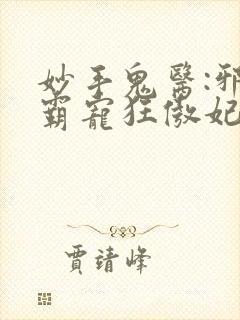 妙手鬼醫:邪
霸寵狂傲妃
賈靖峰